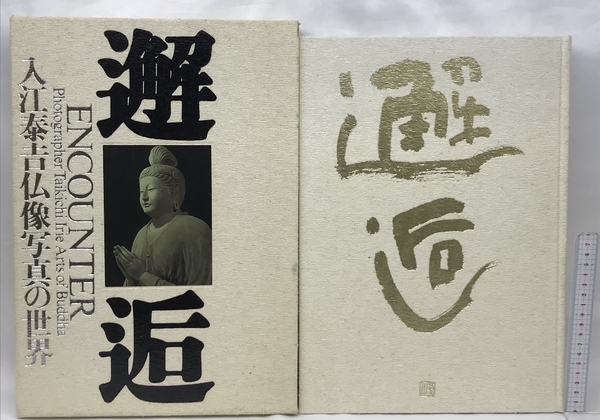 邂逅
ENCOUNTER
Photographer Taikichi Irie Arts of Buddha
入江泰吉仏像写真の世界
邂逅